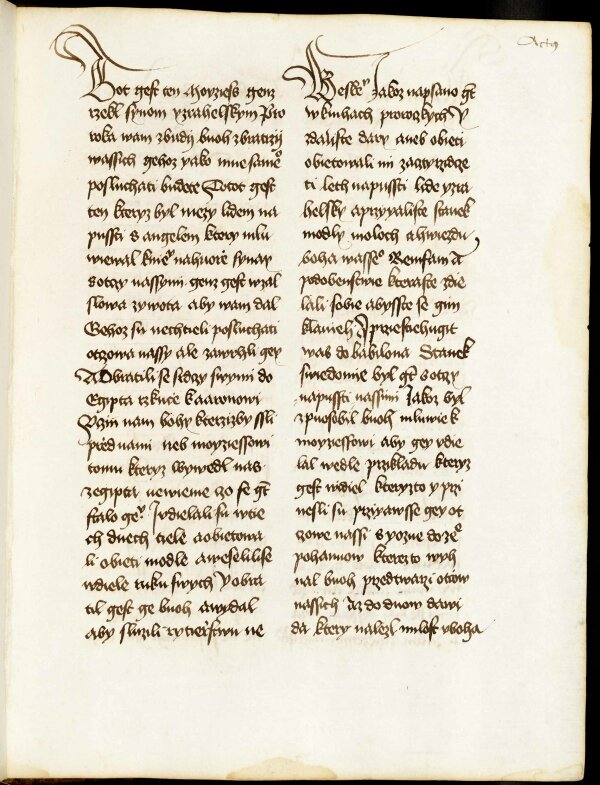 Actꝰ
Tot gest ten Moyziess genz
rzekl synom yzrahelskym Pro
roka wam zbudy buoh zbratrzij
wassich gehoz yako mne sameᵒ
posluchati budete Totot gest
ten kteryz byl mezy lidem na
pussti s angelem ktery mlu
wiewal kmieᵘ nahuore synay
sotczy nassymi genz gest wzal
slowa zywota aby wam dal
Gehoz su nechtieli posluchati
otczowe nassy ale zawrhli gey
A Obratili se srdczy swymi do
Egipta rzkucze kaaronowi
Vczin nam bohy kterzizby ssli
przed nami neb moyziessowi
tomu kteryz wywedl nas
zegipta newieme czo se gt
stalo geᵐ I vdielali su wtie
ch dnech tiele aobietowa
li obieti modle aweselilise
wdiele ruku swych Y obra
til gest ge buoh awydal
aby sluzili rytierstwu ne
Beskeᵘ Jakoz napsano gt
wknihach prorockych Y
zdaliste dary aneb obieti
obietowali mi zactyrzidcze
ti leth napussti lide yzra
helsky aprzyyaliste stanek
modly moloch ahwiezdu
boha wasseᵒ Remfam A
podobenstwie kteraste zdie
lali sobie abysste se gim
klanieli J przestiehugit
was do babilona Stanek
swiedomie byl gt s otczy
napussti nassimi Jakoz byl
zpuosobil buoh mluwie k
moyziessowi aby gey vdie
lal wedle przikladu kteryz
gest widiel kteryzto y przi
nesli su przyyawsse gey ot
czowe nassi s yozue do zeᵒ
pohanuow kterezto wyh
nal buoh przedtwarzi otcow
nassich Az do dnow dawi
da ktery nalezl milost vboha